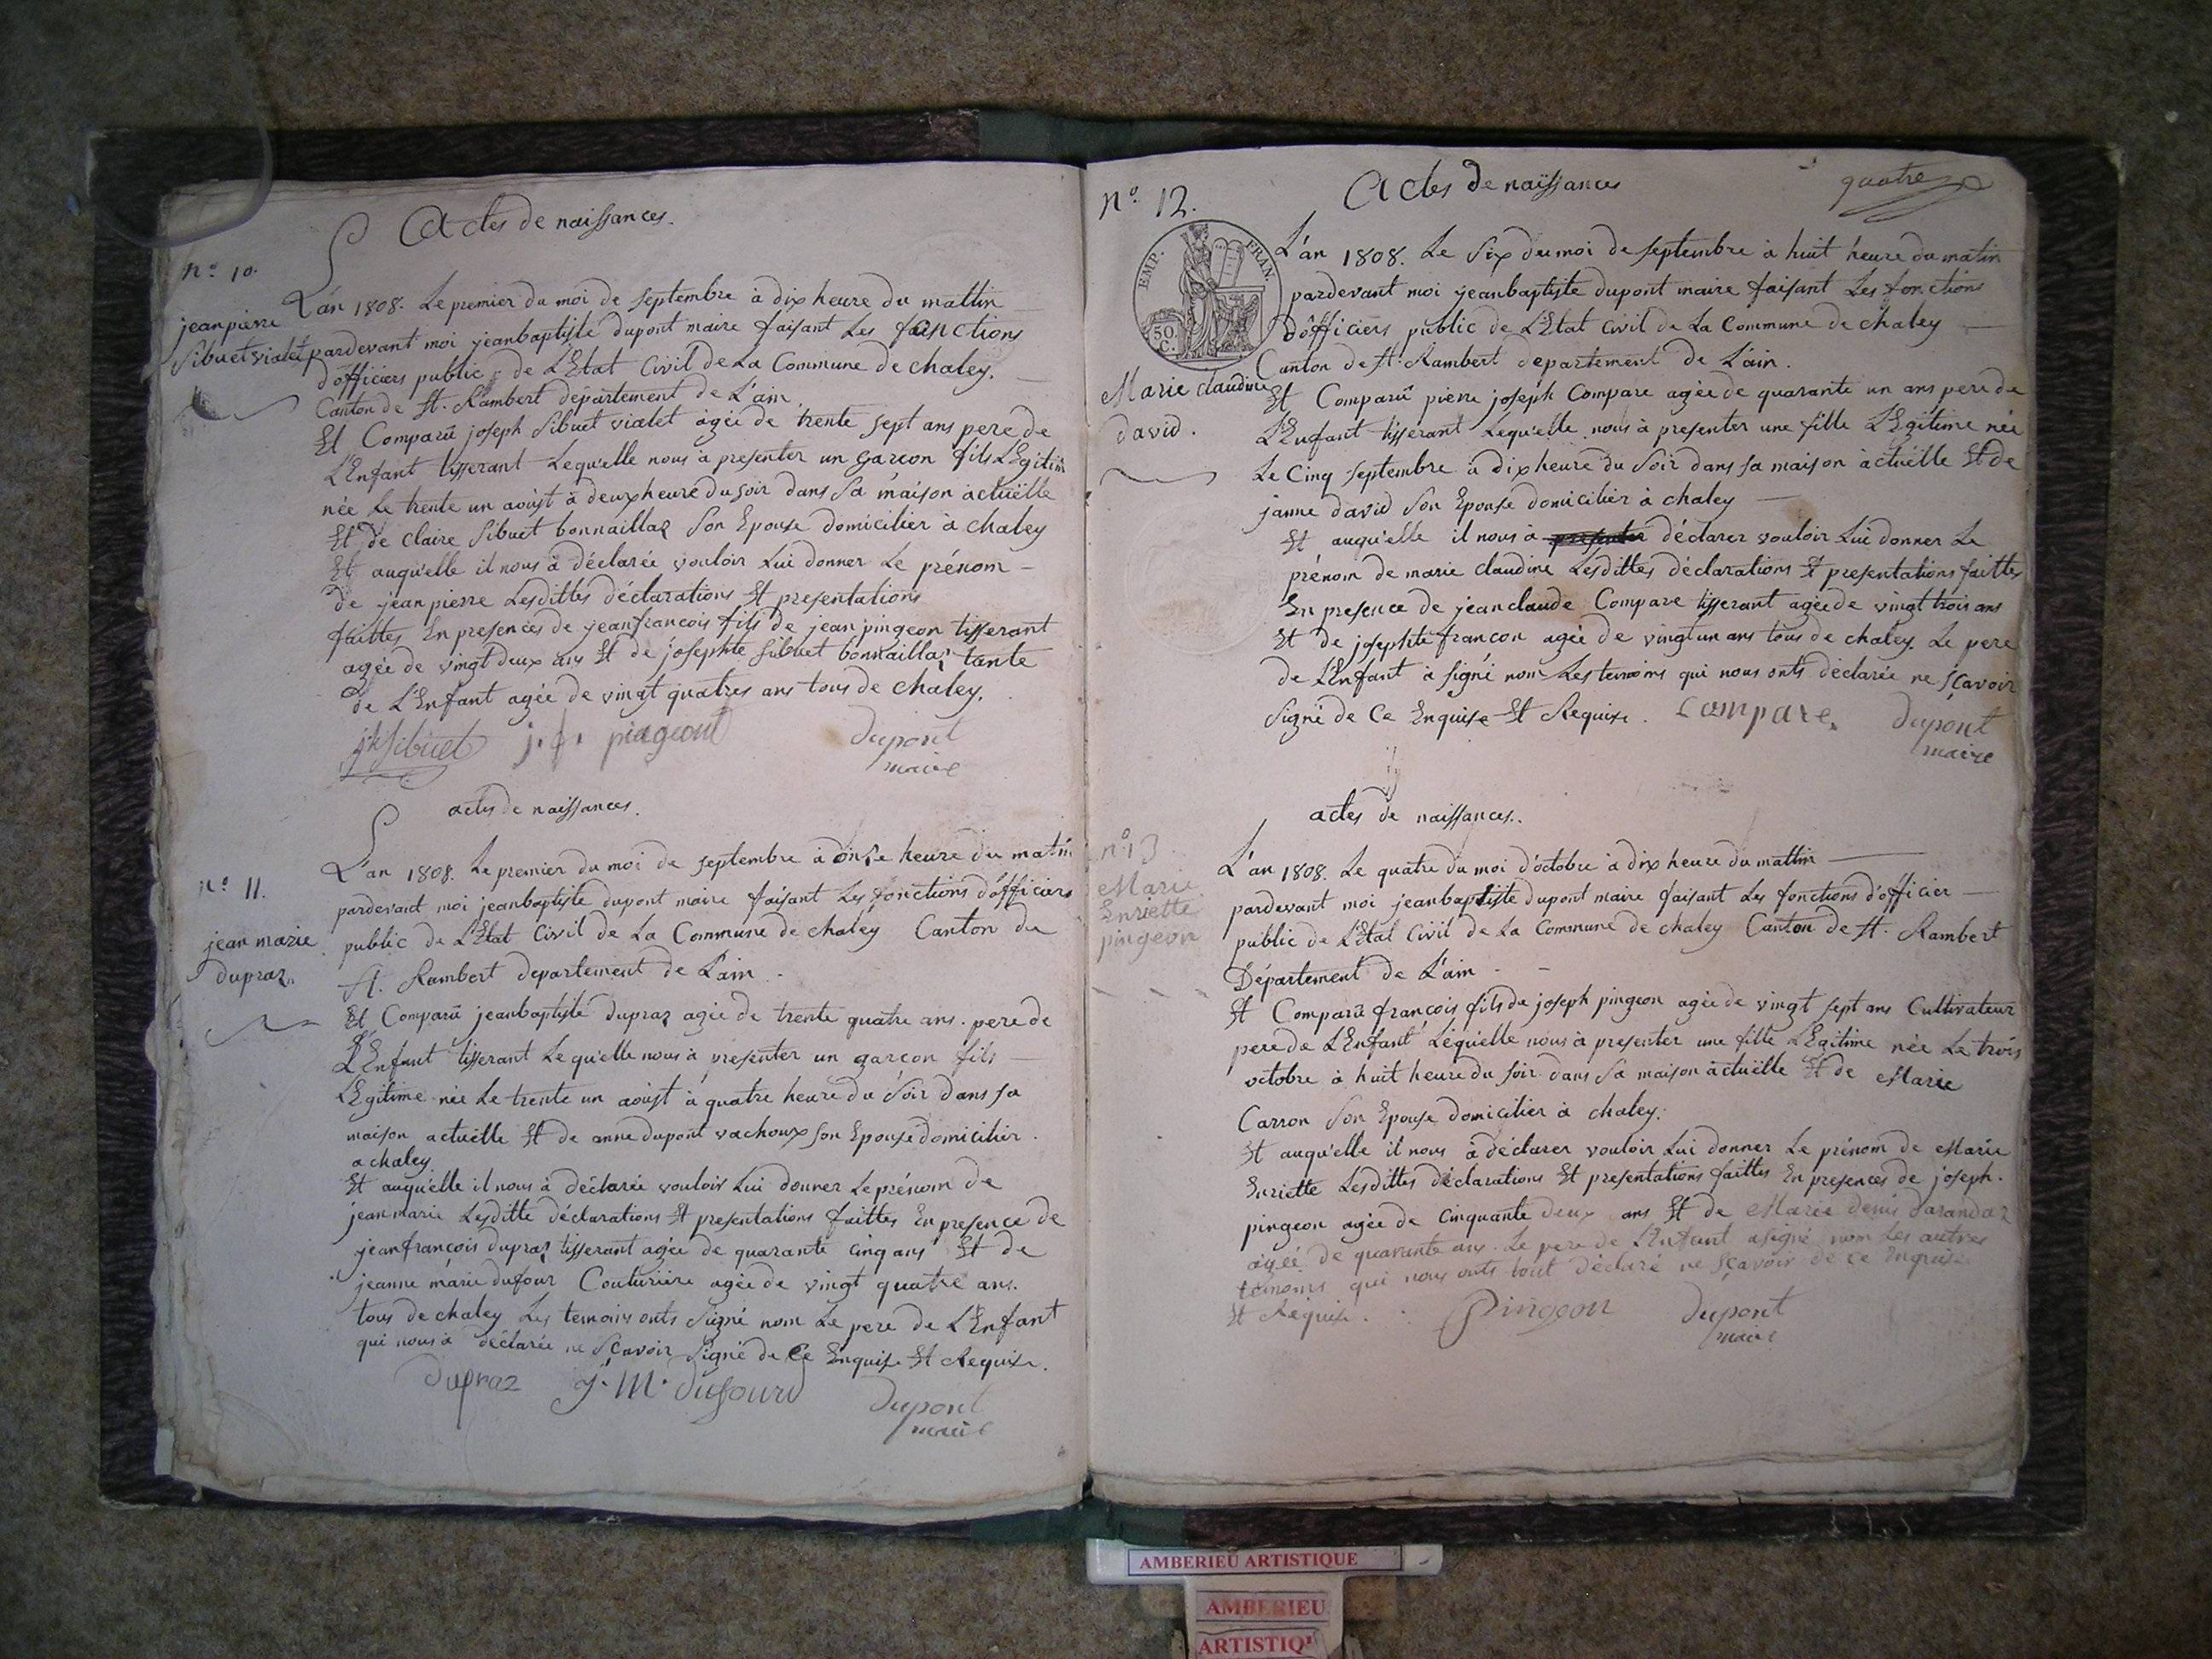 Actes de naissances.
n.o 10.
jean pierre
Sibuet vialet
L'an 1808. Le premier du moi de septembre à dix heure du mattin
pardevant moi jeanbaptiste dupont maire faisant Les fonctions
d'officiers public de L'Etat Civil de La Commune de chaley.
Canton de St. Rambert département de L'ain.
Et Comparû joseph Sibuet vialet agée de trente sept ans pere de
L'Enfant tisserant Lequ'elle nous à presenter un garcon fils LEgitime
née Le trente un aoust à deux heure du soir dans sa maison actuëlle
Et de claire Sibuet bonnaillaz Son Epouse domicilier à chaley
Et auqu'elle il nous à déclarée vouloir Lui donner Le prénom -
de jean pierre Lesdittes déclarations Et presentations
faittes En presences de jeanfrancois fils de jean pingeon tisserant
agée de vingt deux ans Et de josephte Sibuet bonnaillaz tante
de L'Enfant agée de vingt quatres ans tous de chaley.
jh Sibuet j. f. pingeont dupont
maire
actes de naissances.
n.o 11.
jean marie
dupraz.
L'an 1808. Le premier du moi de septembre à onse heure du matin
pardevant moi jeanbaptiste dupont maire faisant Les fonctions d'officiers
public de L'Etat Civil de La Commune de chaley Canton de
St. Rambert departement de L'ain.
Et Comparû jeanbaptiste dupraz agée de trente quatre ans. pere de
L'Enfant tisserant Lequ'elle nous à presenter un garcon fils
LEgitime née Le trente un aoust à quatre heure du Soir dans sa
maison actuëlle Et de anne dupont vachoux son Epouse domicilier.
a chaley
Et auqu'elle il nous à déclarée vouloir Lui donner Le prénom de
jean marie Lesditte déclarations Et presentations faittes En presence de
jeanfrançois dupraz tisserant agée de quarante cinq ans Et de
jeanne marie dufour Couturiere agée de vingt quatre ans.
tous de chaley Les temoins onts Signé nom Le pere de L'Enfant
qui nous à déclarée ne Scavoir Signé de Ce Enquise Et Requise.
dupraz j. M. dufourd dupont
maire
n.o 12.
Actes de naissances
quatre
EMP. FRAN.
50 C.
Marie claudine
david.
L'an 1808. Le Six du moi de septembre à huit heure du matin
pardevant moi jeanbaptiste dupont maire faisant Les fonctions
d'officiers public de L'Etat Civil de La Commune de chaley
Canton de St. Rambert departement de L'ain.
Et Comparû pierre joseph Compare agée de quarante un ans pere de
L'Enfant tisserant Lequ'elle nous à presenter une fille LEgitime née
Le Cinq septembre à dix heure du Soir dans sa maison actuëlle Et de
janne david Son Epouse domicilier à chaley
Et auqu'elle il nous à presenter déclarer vouloir Lui donner Le
prénom de marie claudine Lesdittes déclarations Et presentations faittes
En presence de jeanclaude Compare tisserant agée de vingt trois ans
Et de josephte francon agée de vingt un ans tous de chaley. Le pere
de L'Enfant à signé nom Les temoins qui nous onts déclarée ne Scavoir
Signé de Ce Enquise Et Requise. Compare. dupont
maire
actes de naissances.
n.o 13
Marie
Enriette
pingeon
L'an 1808. Le quatre du moi d'octobre à dix heure du mattin
pardevant moi jeanbaptiste dupont maire faisant Les fonctions d'officier
public de L'Etat Civil de La Commune de chaley Canton de St. Rambert
Département de L'ain
Et Comparû françois fils de joseph pingeon agée de vingt sept ans Cultivateur
pere de L'Enfant Lequelle nous à presenter une fille LEgitime née Le trois
octobre à huit heure du soir dans Sa maison actuëlle Et de Marie
Carron Son Epouse domicilier à chaley.
Et auqu'elle il nous à déclarer vouloir Lui donner Le prénom de Marie
Enriette Lesdittes déclarations Et presentations faittes En presences de joseph.
pingeon agée de Cinquante deux ans Et de Marie denis Tarandaz
agée de quarante ans. Le pere de L'Enfant a signé nom Les autres
temoins qui nous onts tout déclaré ne Scavoir de ce Enquise
Et Requise. Pingeon dupont
maire
AMBERIEU ARTISTIQUE
AMBERIEU
ARTISTIQ